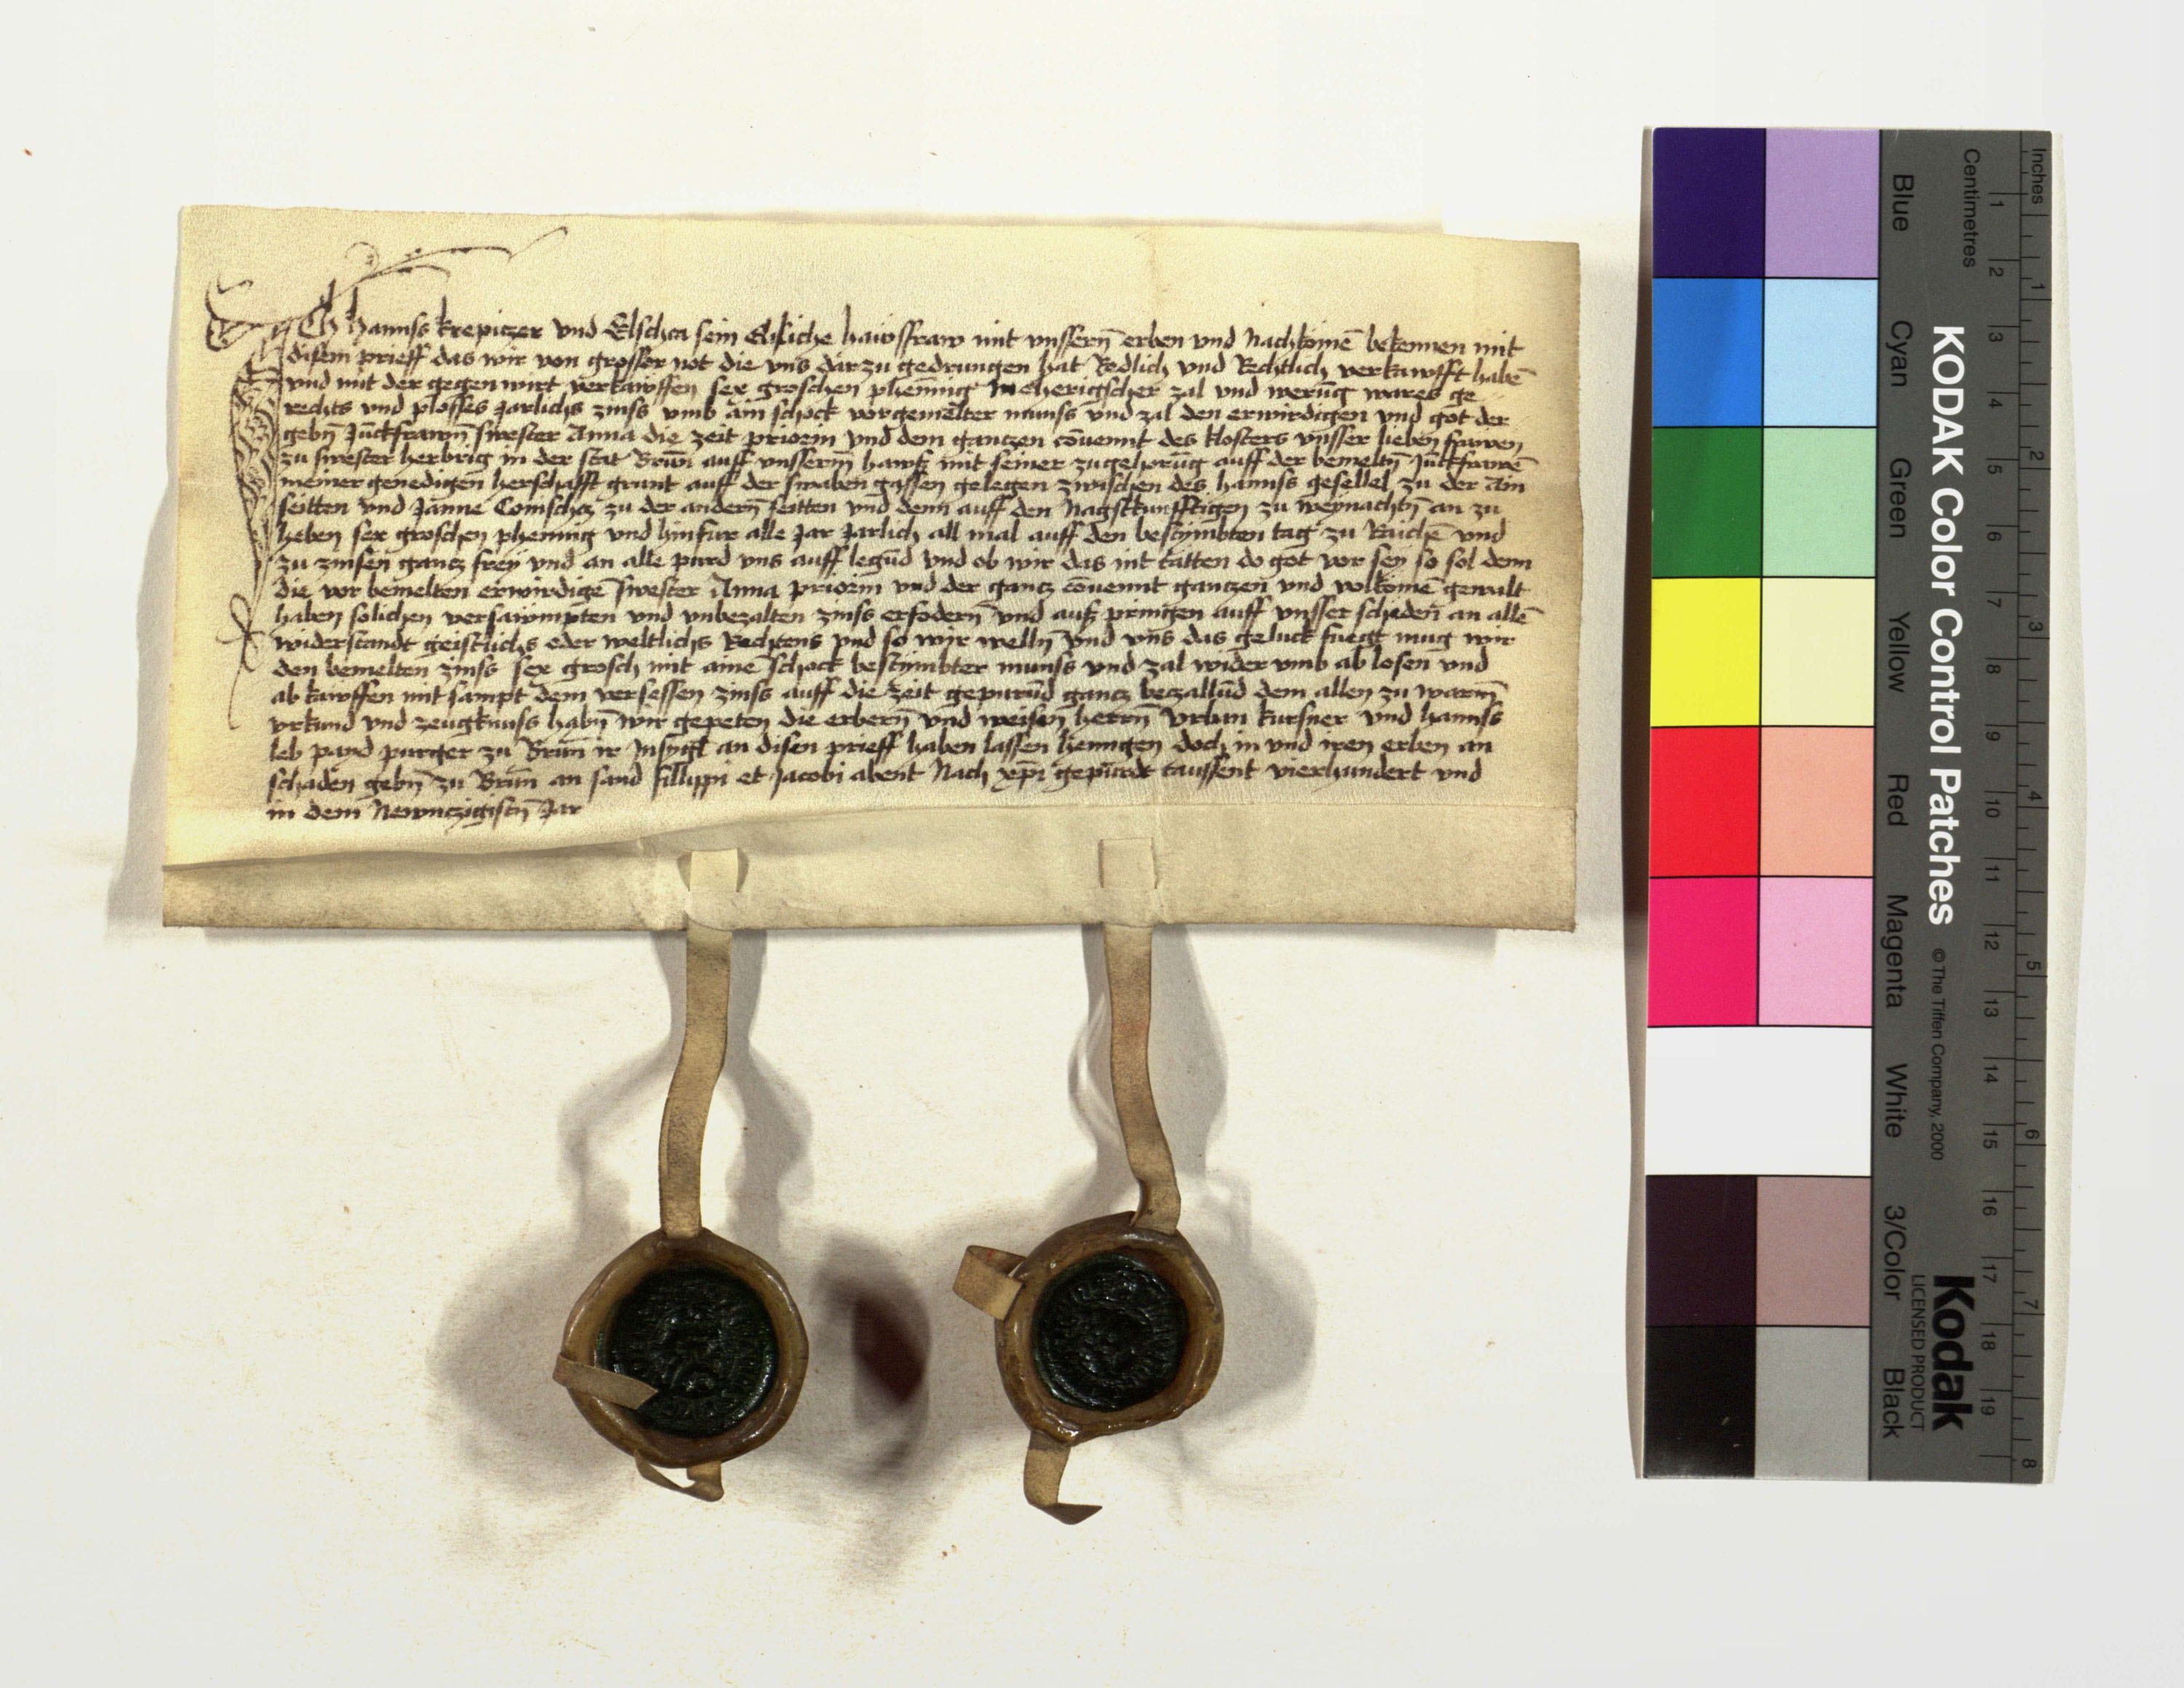 Ich hannss krepiczer vnd Elscha sein Eliche hawsfraw mit vnssern̄ erben vnd Nachkomē bekennen mit
disem prieff das wir von grosser not die vns dar zu gedrungen hat Redlich vnd Rechtlich verkawfft habē
vnd mit der gegen wurt verkawffen sex groschen phenning Meherigscher zal vnd werūg wares ge
rechts vnd plosses Jarlichs zinss vmb ain schock vorgemelter munss vnd zal den erwirdigen vnd got der
gebn̄ Jūckfrawn̄ swester Anna die zeit priorin vnd dem ganczen cōuennt des klosters vnsser lieben frawen
zu swester herbrig in der stat Brūn auff vnsserm̄ hawß mit seiner zugehorūg auff der bemeltn̄ Jūckfrawē
meiner genedigen herschafft grunt auff der swaben gassen gelegen zwischen des hannss gesellel zu der Ain
seitten vnd Janne Comschcz zu der andern̄ seitten vnd denn auff den Nagstkunfftigen zu weynachtn̄ an zu
heben sex groschen phennig vnd hinfur alle Jar Jarlich all mal auff den bestymbten tag zu Raichē vnd
zu zinsen gancz frey vnd an alle purd vns auff legūd vnd ob wir das nit tatten do got vor sey so sol denn
die vor bemelten erwirdige swester Anna priorin vnd der gancz cōuennt ganczen vnd volkomē gewalt
haben solichen versawmpten vnd vnbezalten zinss erfodern̄ vnd auß pringen auff vnsser schaden̄ an allē
widerstandt geistlichs oder weltlichs Rechtens vnd so wir welln̄ vnd vns das geluck fuegt mug wir
den bemelten zinss sex grosch mit aine schock bestymbter munss vnd zal wider vmb ab losen vnd
ab kawffen mit sampt dem versessen zinss auff die zeit gepurūd gancz beczallūd dem allen zu warm̄
vrkund vnd zeugknuss habn̄ wir gepeten die erbern̄ vnd weisen herrn̄ vrban kursner vnd hannss
leb payd purger zu Brūn ir Insygl an disen prieff haben lassen henngen doch in vnd iren erben an
schaden gebn̄ zu Brūn an sand fillippi et Jacobi abent Nach xp̄i gepurdt taussent vierhundert vnd
in dem Newnczigistn̄ Jar
Inches
Centimetres
Blue Cyan Green Yellow Red Magenta White 3/Color Black
KODAK Color Control Patches © The Tiffen Company, 2000
Kodak
LICENSED PRODUCT
1 2 3 4 5 6 7 8 9 10 11 12 13 14 15 16 17 18 19
1 2 3 4 5 6 7 8